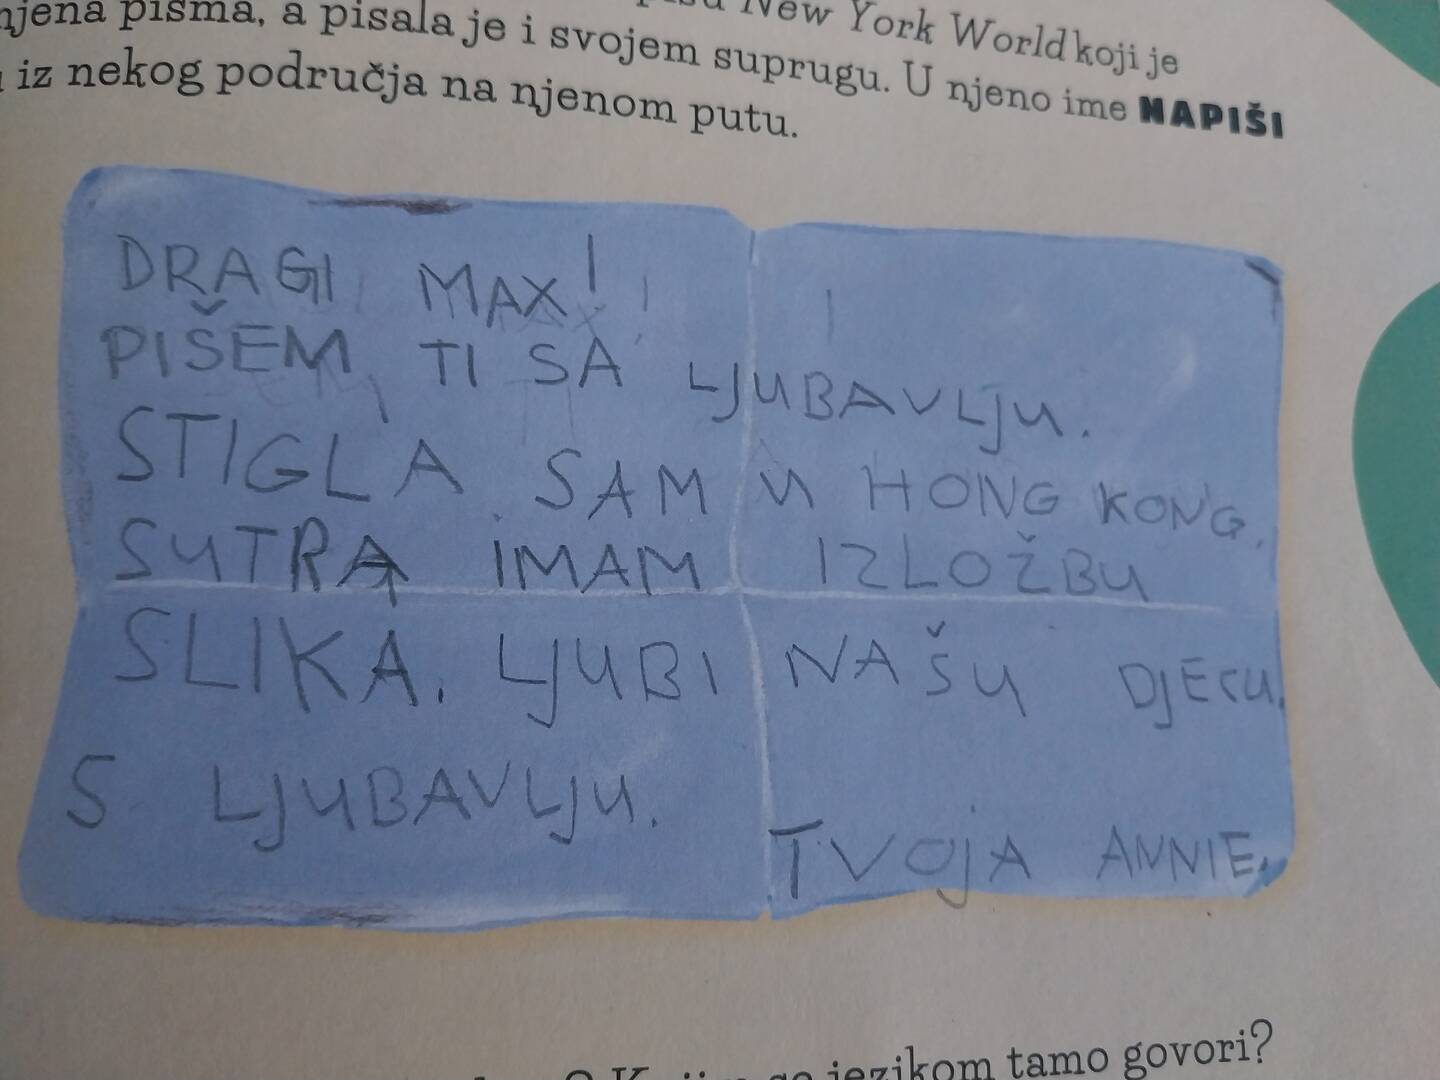 New York World koji je
njena pisma, a pisala je i svojem suprugu. U njeno ime NAPIŠI
iz nekog područja na njenom putu.
DRAGI MAX!
PIŠEM TI SA LJUBAVLJU.
STIGLA SAM U HONG KONG.
SUTRA IMAM IZLOŽBU
SLIKA. LJUBI NAŠU DJECU.
S LJUBAVLJU.
TVOJA ANNIE.
jezikom tamo govori?